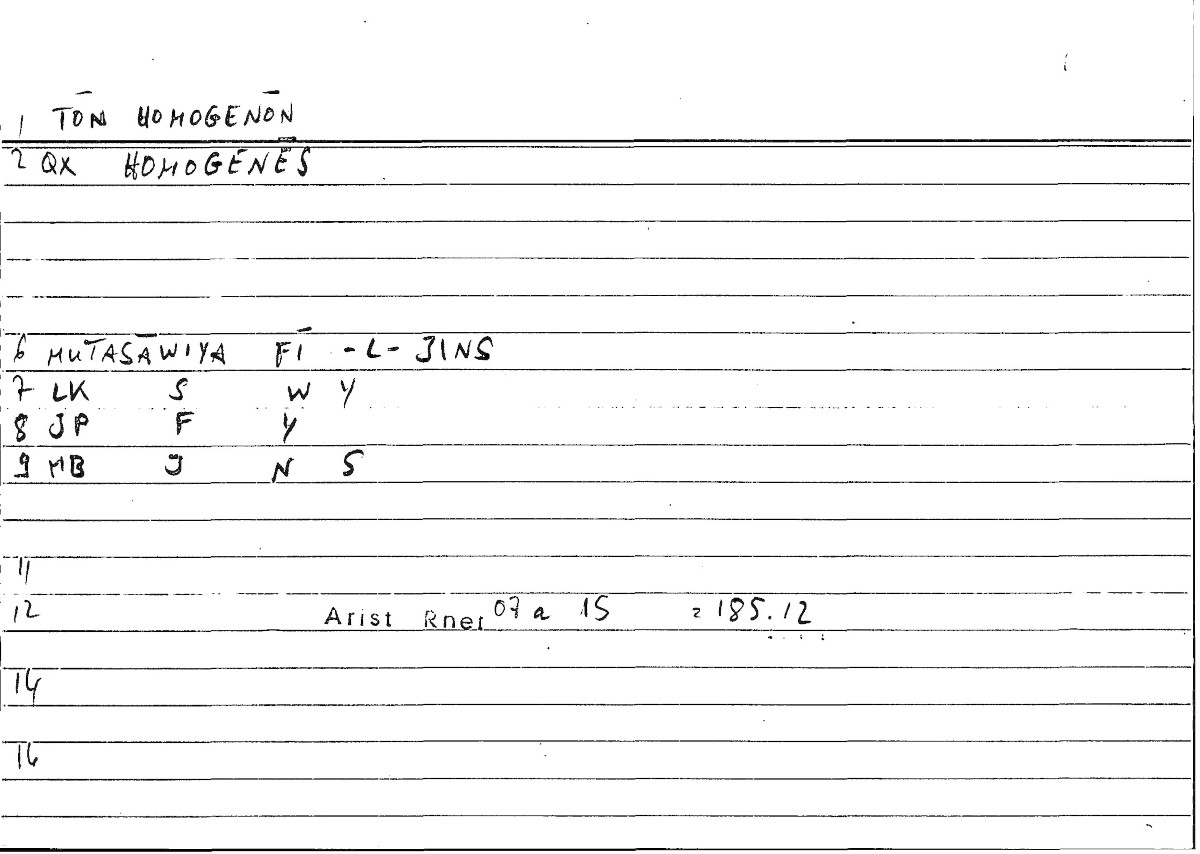 1 TŌN HOMOGENŌN
2 QX HOMOGENĒS
6 MUTASĀWIYA FĪ -L- JINS
7 LK S W Y
8 JP F Y
9 MB J N S
11
12 Arist Rner 07 a 15 = 185.12
14
16